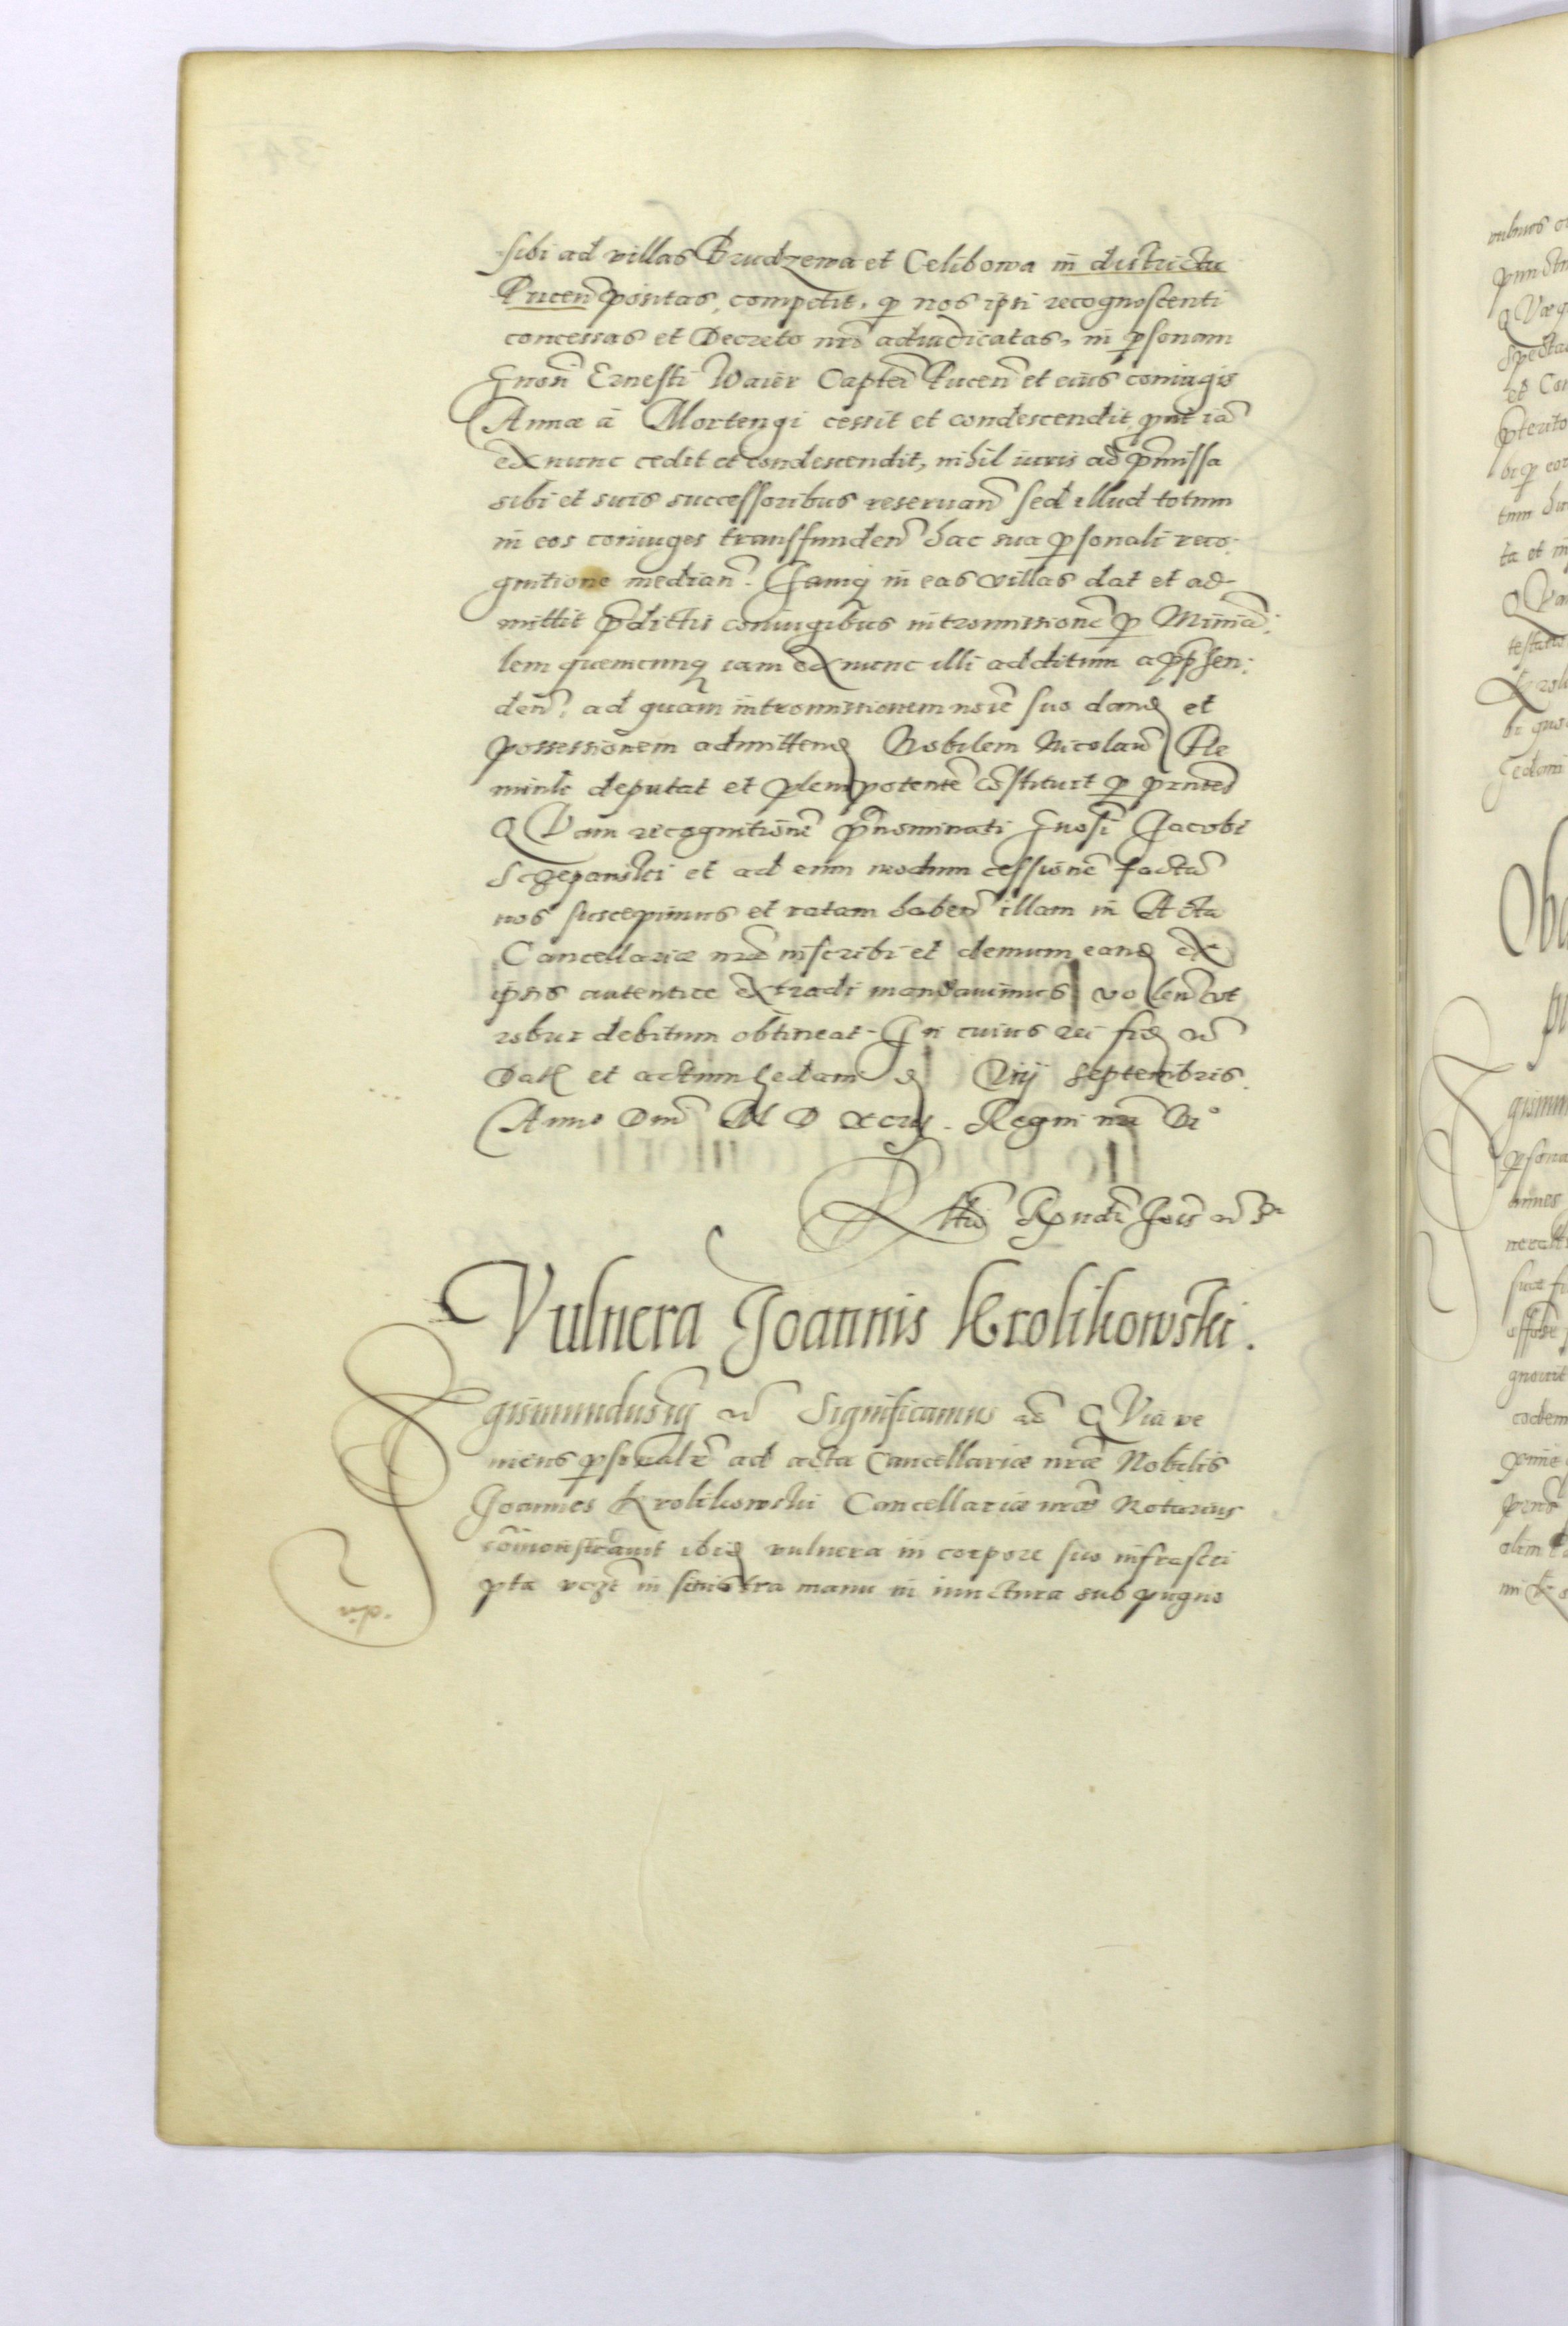 sibi ad villas Brudzewa et Celibowa in districtu
Pucen̄ positas, competit, p̱ nos ipsi recognoscenti
concessas et Decreto nr̄o adiudicatas, in p̱sonam
Gnosi Ernesti Waier Captei Pucen̄ et eius coniugis
Annæ à Mortengi cessit et condescendit, put iā
ex nunc cedit et condescendit, nihil iuris ad p̄missa
sibi et suis successoribus reseruan̄ sed illud totum
in eos coniuges transfunden̄ hac sua p̱sonali reco-
gnitione median̄. Iamq in eas villas dat et ad-
mittit p̄dictis coniugibus intromissionē p̱ Miniā:
lem quemcunq iam ex nunc illi additum app̄hen:
den̄, ad quam intromissionem noīe suo dand et
possessionem admittend Nobilem Nicolaū Ple
minski deputat et plenipotentē cōstituit p̱ pr̄ntes
QVam recognitionē p̄nominati Gnosi Jacobi
Sczepanski et ad eum modum cessionē factā
nos suscepimus et ratam haben̄ illam in Acta
Cancellariæ nr̄æ inscribi et demum eand ex
ipsis autentice extradi mandauimus volen̄ ut
robur debitum obtineat. In cuius rei fid &
Dat et actum Gedani d Viij Septembris
Anno Dnī M D xciij. Regni nr̄i Vi°
Vulnera Joannis Krolikowski.
Sigismundus iij & Significamus & QVia ve
niens p̱sonalr̄ ad acta Cancellariæ nr̄æ Nobilis
Joannes Krolikowski Cancellariæ nr̄æ Notarius
cōmonstrauit ibid vulnera in corpore suo infrascri
pta vcz̄t in sinistra manu in iunctura sub pugno